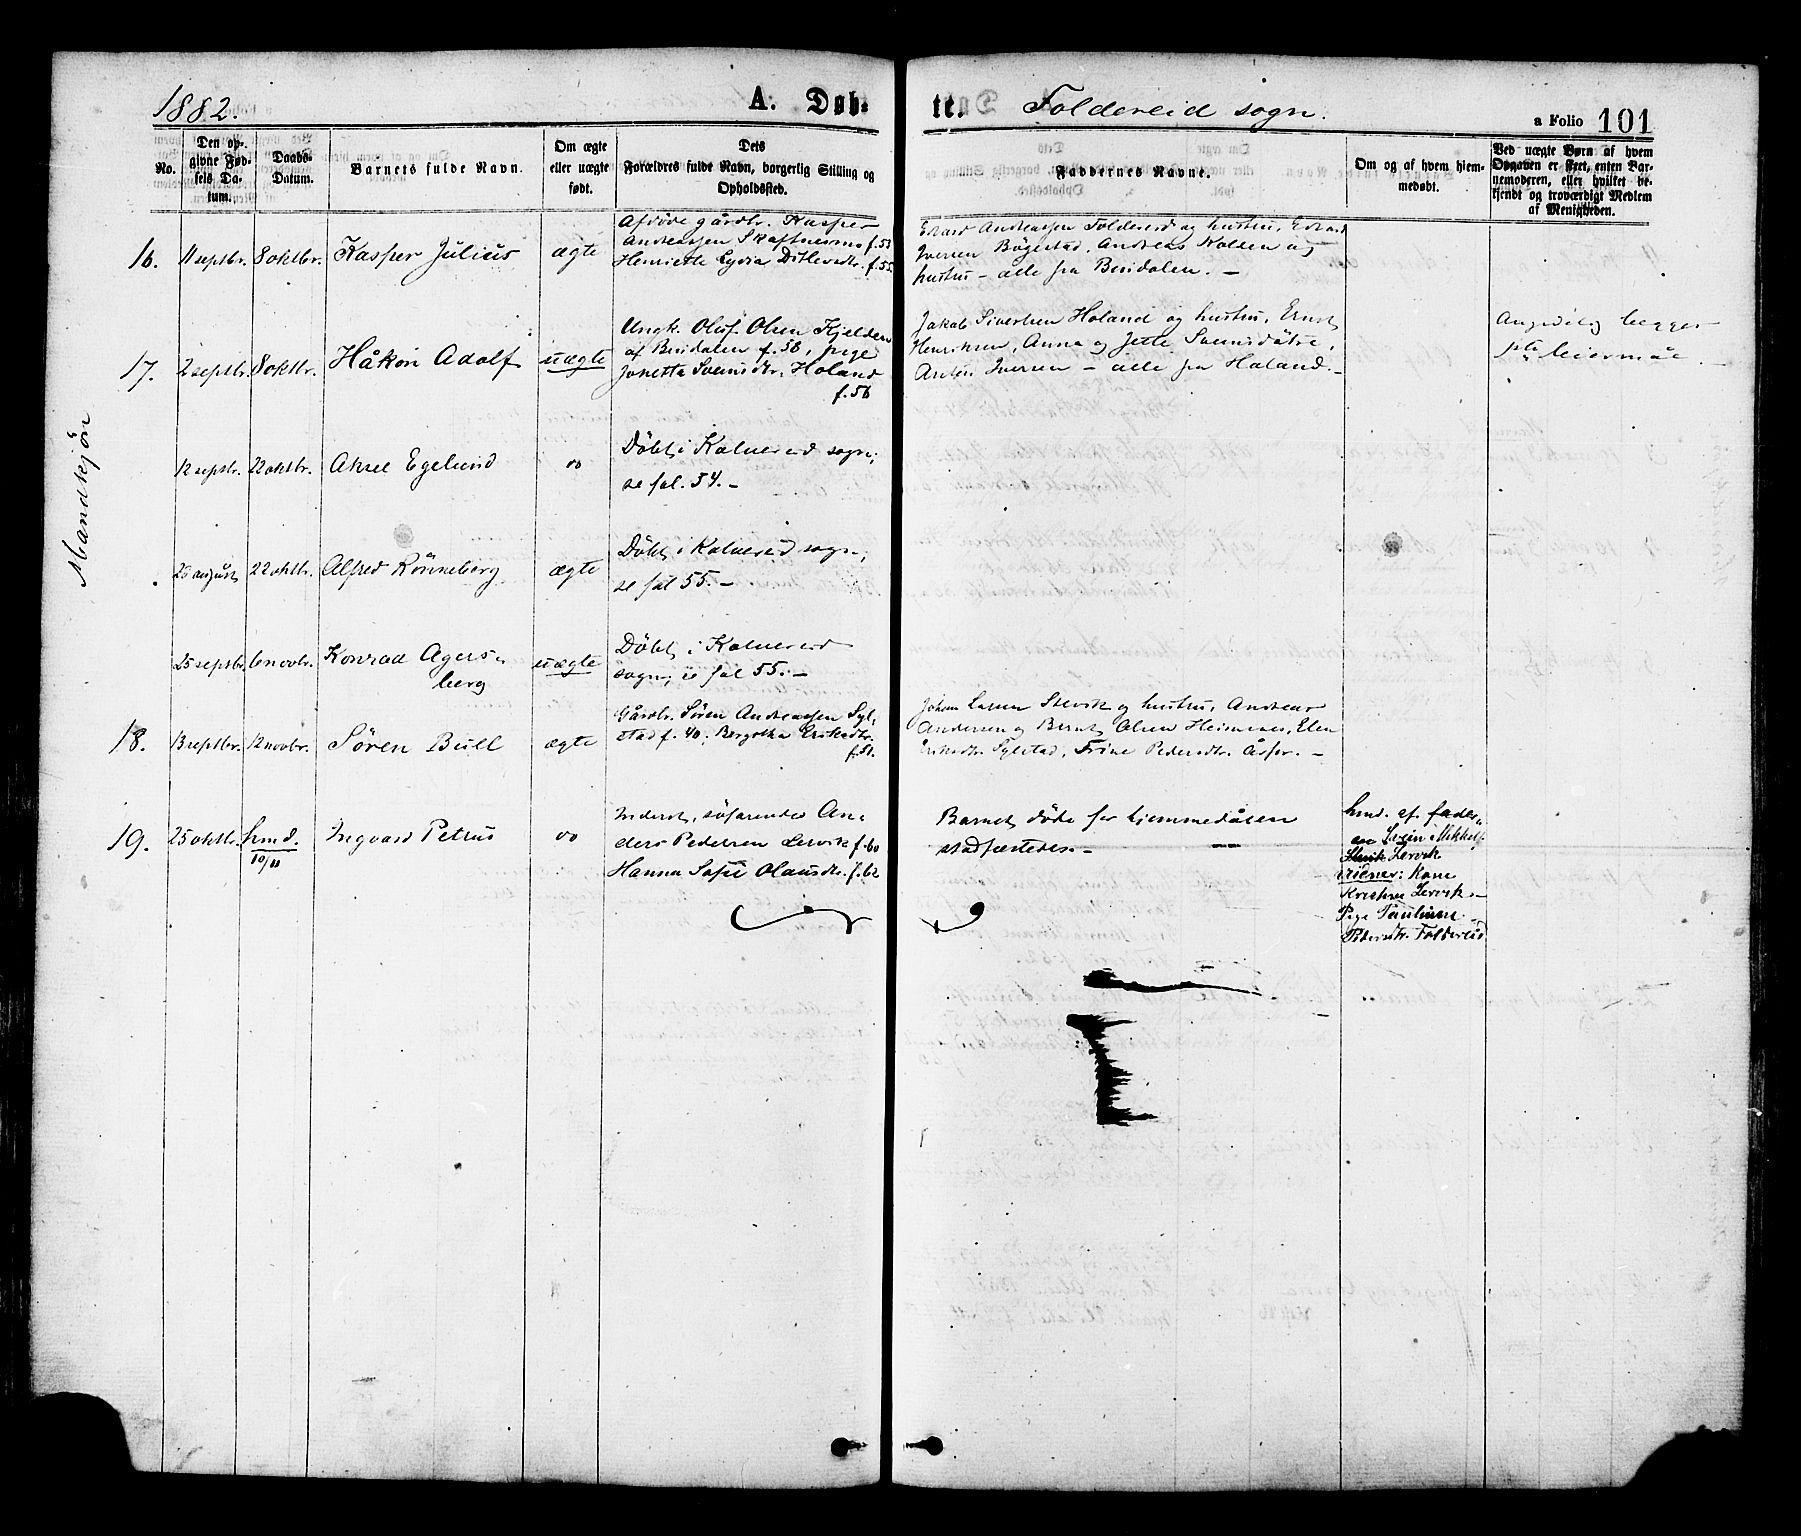 1882.
A. Døb-
te.
Foldereid sogn.
a Folio 101
No.
Den op-
givne Fød-
sels Da-
tum.
Daabs-
Datum.
Barnets fulde Navn.
Om ægte
eller uægte
født.
Dets
Forældres fulde Navn, borgerlig Stilling og
Opholdssted.
Faddernes Navne.
Om og af hvem hjem-
medøbt.
Ved uægte Børn af hvem
Opgaven er skeet, enten Bar-
nemoderen, eller hvilket be-
kjendt og troværdigt Medlem
af Menigheden.
Mandkjön
16.
11 septbr.
8 oktbr.
Kasper Julius
ægte
Afdöde gårdbr. Kasper
Andreassen Skaftnesmo f. 53
Henriette Lydia Ditlevsdtr. f. 55.
Edvard Andreassen Foldereid og hustru, Edvard
Iversen Bögestad, Andreas Kolsen og
hustru – alle fra Bindalen. –
17.
2 septbr.
8 oktbr.
Håkon Adolf
uægte
Ungk. Oluf Olsen Kjelden
af Bindalen f. 58, pige
Jonetta Svensdtr. Holand
f. 56
Jakob Sivertsen Holand og hustru, Ernst
Henriksen, Anna og Jette Svensdötre,
Anton Iversen – alle fra Holand. –
Angivelig begges
1ste leiermåe. –
12 septbr.
22 oktbr.
Aksel Egelund
"
Döbt i Kolvereid sogn;
se fol. 54. –
26 august
22 oktbr.
Alfred Rönneberg
ægte
Döbt i Kolvereid sogn;
se fol 55. –
25 septbr.
6 novbr.
Konrad Agers-
berg
uægte
Döbt i Kolvereid
sogn; se fol 55. –
18.
13 septbr.
12 novbr.
Sören Bull
ægte
Gårdbr. Sören Andreassen Syl-
stad f. 40; Bergitha Eriksdtr.
f. 51.
Johan Larsen Stervik og hustru, Andreas
Andersen og Bernt Olsen Heimnes, Elen
Eriksdtr. Sylstad, Trine Pedersdtr. Årfor. –
19.
25 oktbr.
hmd.
10/11
Ingvard Petrus
"
Inderst, söfarende An-
ders Pedersen Lervik f. 60
Hanna Sofie Olausdtr. f. 62
Barnet döde för hjemmedåben
stadfæstedes. –
hmd. af fader-
en Svein Mikkels
Lervik
vidner: Kone
Kristine Lervik –
Pige Pauline
Pedersdtr. Foldereid